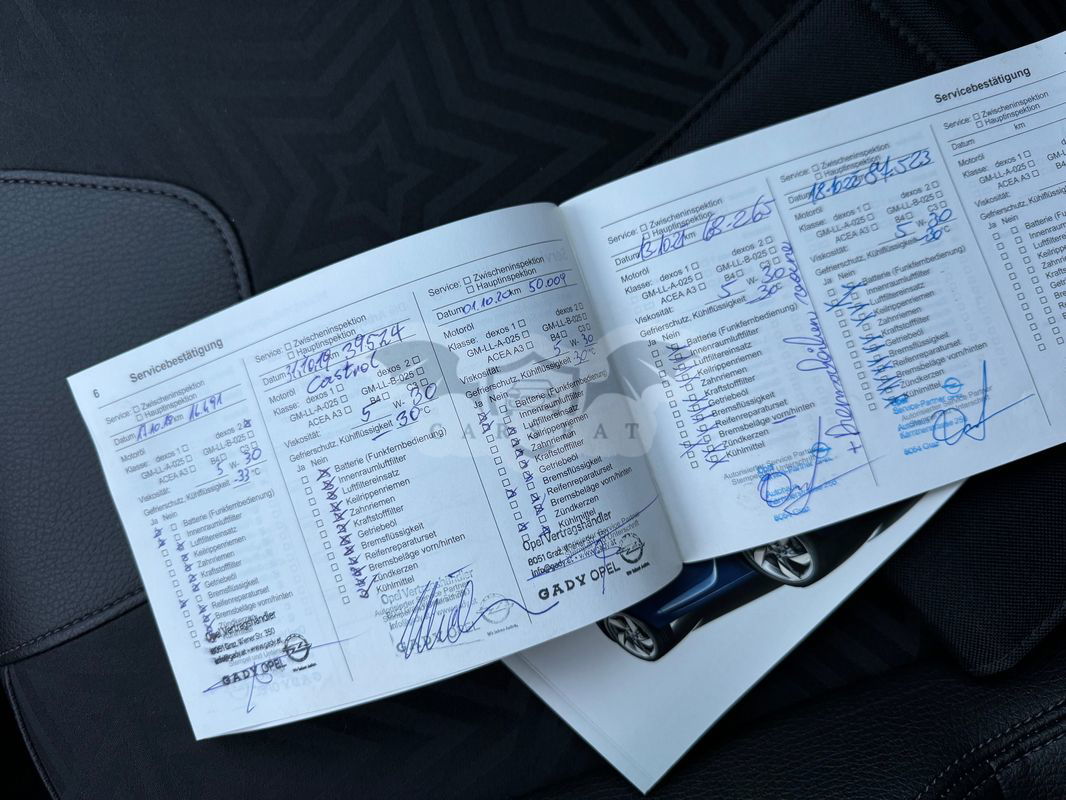 6 Servicebestätigung
Service: Zwischeninspektion
Hauptinspektion
Datum 17.10.18 km 14491
Motoröl
Klasse: dexos 1 dexos 2
GM-LL-A-025 GM-LL-B-025
ACEA A3 B4 C3
Viskosität: 5 W- 30
Gefrierschutz, Kühlflüssigkeit -33 °C
Ja Nein
Batterie (Funkfernbedienung)
Innenraumluftfilter
Luftfiltereinsatz
Keilrippenriemen
Zahnriemen
Kraftstofffilter
Getriebeöl
Bremsflüssigkeit
Reifenreparaturset
Bremsbeläge vorn/hinten
Opel Vertragshändler
8051 Graz, Wiener Str. 350
GADY OPEL
Service: Zwischeninspektion
Hauptinspektion
Datum 31.10.19 km 39524
Castrol
Klasse: dexos 1 dexos 2
GM-LL-A-025 GM-LL-B-025
ACEA A3 B4
Viskosität: 5 W- 30
Gefrierschutz, Kühlflüssigkeit -30 °C
Ja Nein
Batterie (Funkfernbedienung)
Innenraumluftfilter
Luftfiltereinsatz
Keilrippenriemen
Zahnriemen
Kraftstofffilter
Getriebeöl
Bremsflüssigkeit
Reifenreparaturset
Bremsbeläge vorn/hinten
Zündkerzen
Kühlmittel
Opel Vertragshändler
Autorisierter Service Partner
Service: Zwischeninspektion
Hauptinspektion
Datum 01.10.20 km 50.009
Motoröl
Klasse: dexos 1 dexos 2
GM-LL-A-025 GM-LL-B-025
ACEA A3 B4 C3
Viskosität: 5 W- 30
Gefrierschutz, Kühlflüssigkeit 30 °C
Ja Nein
Batterie (Funkfernbedienung)
Innenraumluftfilter
Luftfiltereinsatz
Keilrippenriemen
Zahnriemen
Kraftstofffilter
Getriebeöl
Bremsflüssigkeit
Reifenreparaturset
Bremsbeläge vorn/hinten
Zündkerzen
Kühlmittel
Opel Vertragshändler
8051 Graz, Wiener Str. 350
GADY OPEL
Servicebestätigung
Service: Zwischeninspektion
Hauptinspektion
Datum 13.1021 km 68-265
Motoröl
Klasse: dexos 1 dexos 2
GM-LL-A-025 GM-LL-B-025
ACEA A3 B4 C3
Viskosität: 5 W- 30
Gefrierschutz, Kühlflüssigkeit -30 °C
Ja Nein
Batterie (Funkfernbedienung)
Innenraumluftfilter
Luftfiltereinsatz
Keilrippenriemen
Zahnriemen
Kraftstofffilter
Getriebeöl
Bremsflüssigkeit
Reifenreparaturset
Bremsbeläge vorn/hinten
Zündkerzen
Kühlmittel
Autorisierter Service Partner
8054 Graz
Service: Zwischeninspektion
Hauptinspektion
Datum 18.1022 84.523
Motoröl
Klasse: dexos 1 dexos 2
GM-LL-A-025 GM-LL-B-025
ACEA A3 B4 C3
Viskosität: 5 W- 30
Gefrierschutz, Kühlflüssigkeit -30 °C
Ja Nein
Batterie (Funkfernbedienung)
Innenraumluftfilter
Luftfiltereinsatz
Keilrippenriemen
Zahnriemen
Kraftstofffilter
Getriebeöl
Bremsflüssigkeit
Reifenreparaturset
Bremsbeläge vorn/hinten
Zündkerzen
Kühlmittel
Service-Partner
8054 Graz
Service: Zwischeninspektion
Hauptinspektion
Datum km
Motoröl
Klasse: dexos 1
GM-LL-A-025
ACEA A3
Viskosität:
Gefrierschutz, Kühlflüssigkeit
Ja Nein